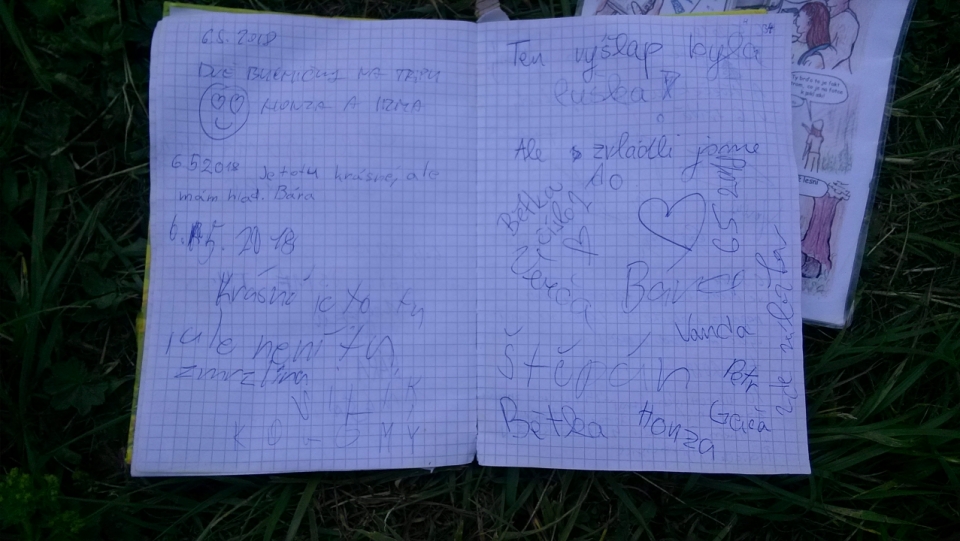 6.5. 2018
DVĚ BUCHTIČKY NA TRIPU
HONZA A IRMA
6 5 2018 Je to tu krásné, ale
mám hlad. Bára
6. 5. 2018
Krásné je to tu
ale není tu
zmrzlina
Ten výšlap byla
Ale zvládli jsme
to
Bětka
Verča
6 5 2018
Bára
Vanda
Štěpán
Petr
Bětka Honza Gača